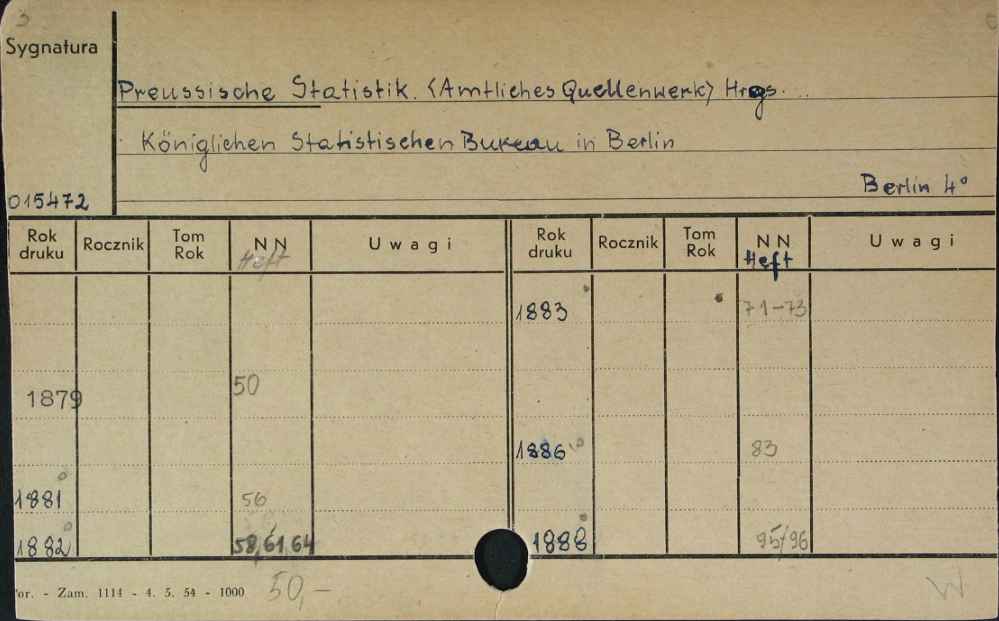 3
Sygnatura
Preussische Statistik. <Amtliches Quellenwerk> Hrgs. ..
Königlichen Statistischen Bureau in Berlin
Berlin 4°
015472
Rok druku Rocznik Tom Rok NN Heft Uwagi Rok druku Rocznik Tom Rok NN Heft Uwagi
1883 71-73
1879 50
1886 83
1881 56
1882 58,61,64 1888 95/96
or. - Zam. 1114 - 4. 5. 54 - 1000 50,-
W